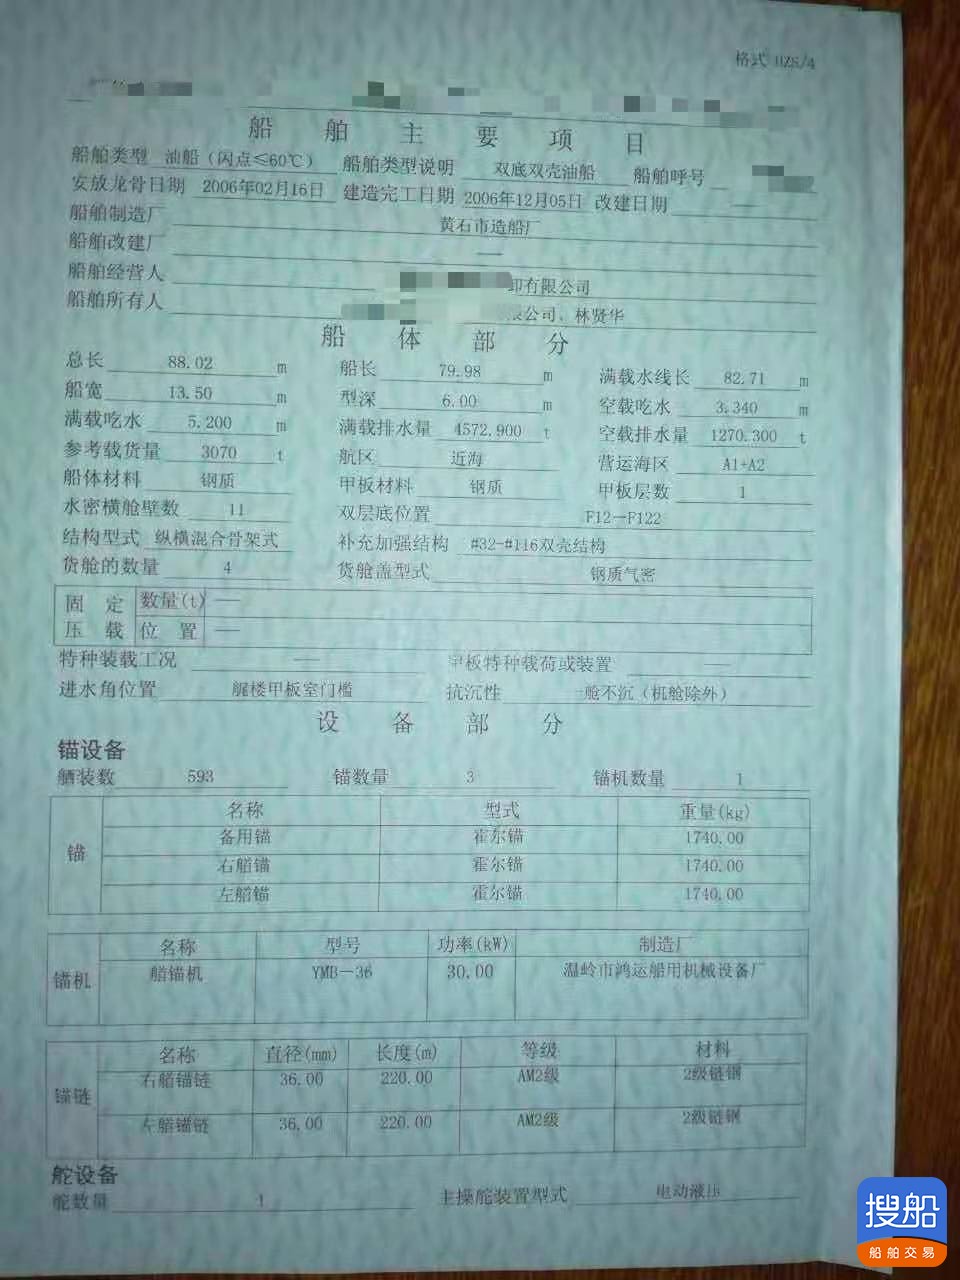 格式 HZS/4
船舶主要项目
船舶类型 油船（闪点≤60℃） 船舶类型说明 双底双壳油船 船舶呼号
安放龙骨日期 2006年02月16日 建造完工日期 2006年12月05日 改建日期 —
船舶制造厂 黄石市造船厂
船舶改建厂 —
船舶经营人 卸有限公司
船舶所有人 限公司、林贤华
船体部分
总长 88.02 m 船长 79.98 m 满载水线长 82.71 m
船宽 13.50 m 型深 6.00 m 空载吃水 3.340 m
满载吃水 5.200 m 满载排水量 4572.900 t 空载排水量 1270.300 t
参考载货量 3070 t 航区 近海 营运海区 A1+A2
船体材料 钢质 甲板材料 钢质 甲板层数 1
水密横舱壁数 11 双层底位置 F12—F122
结构型式 纵横混合骨架式 补充加强结构 #32-#116双壳结构
货舱的数量 4 货舱盖型式 钢质气密
固定压载 数量(t) —
位置 —
特种装载工况 — 甲板特种载荷或装置 —
进水角位置 艉楼甲板室门槛 抗沉性 一舱不沉（机舱除外）
设备部分
锚设备
舾装数 593 锚数量 3 锚机数量 1
锚 名称 型式 重量(kg)
备用锚 霍尔锚 1740.00
右艏锚 霍尔锚 1740.00
左艏锚 霍尔锚 1740.00
锚机 名称 型号 功率(kW) 制造厂
艏锚机 YMB-36 30.00 温岭市鸿运船用机械设备厂
锚链 名称 直径(mm) 长度(m) 等级 材料
右艏锚链 36.00 220.00 AM2级 2级链钢
左艏锚链 36.00 220.00 AM2级 2级链钢
舵设备
舵数量 1 主操舵装置型式 电动液压
搜船
船舶交易